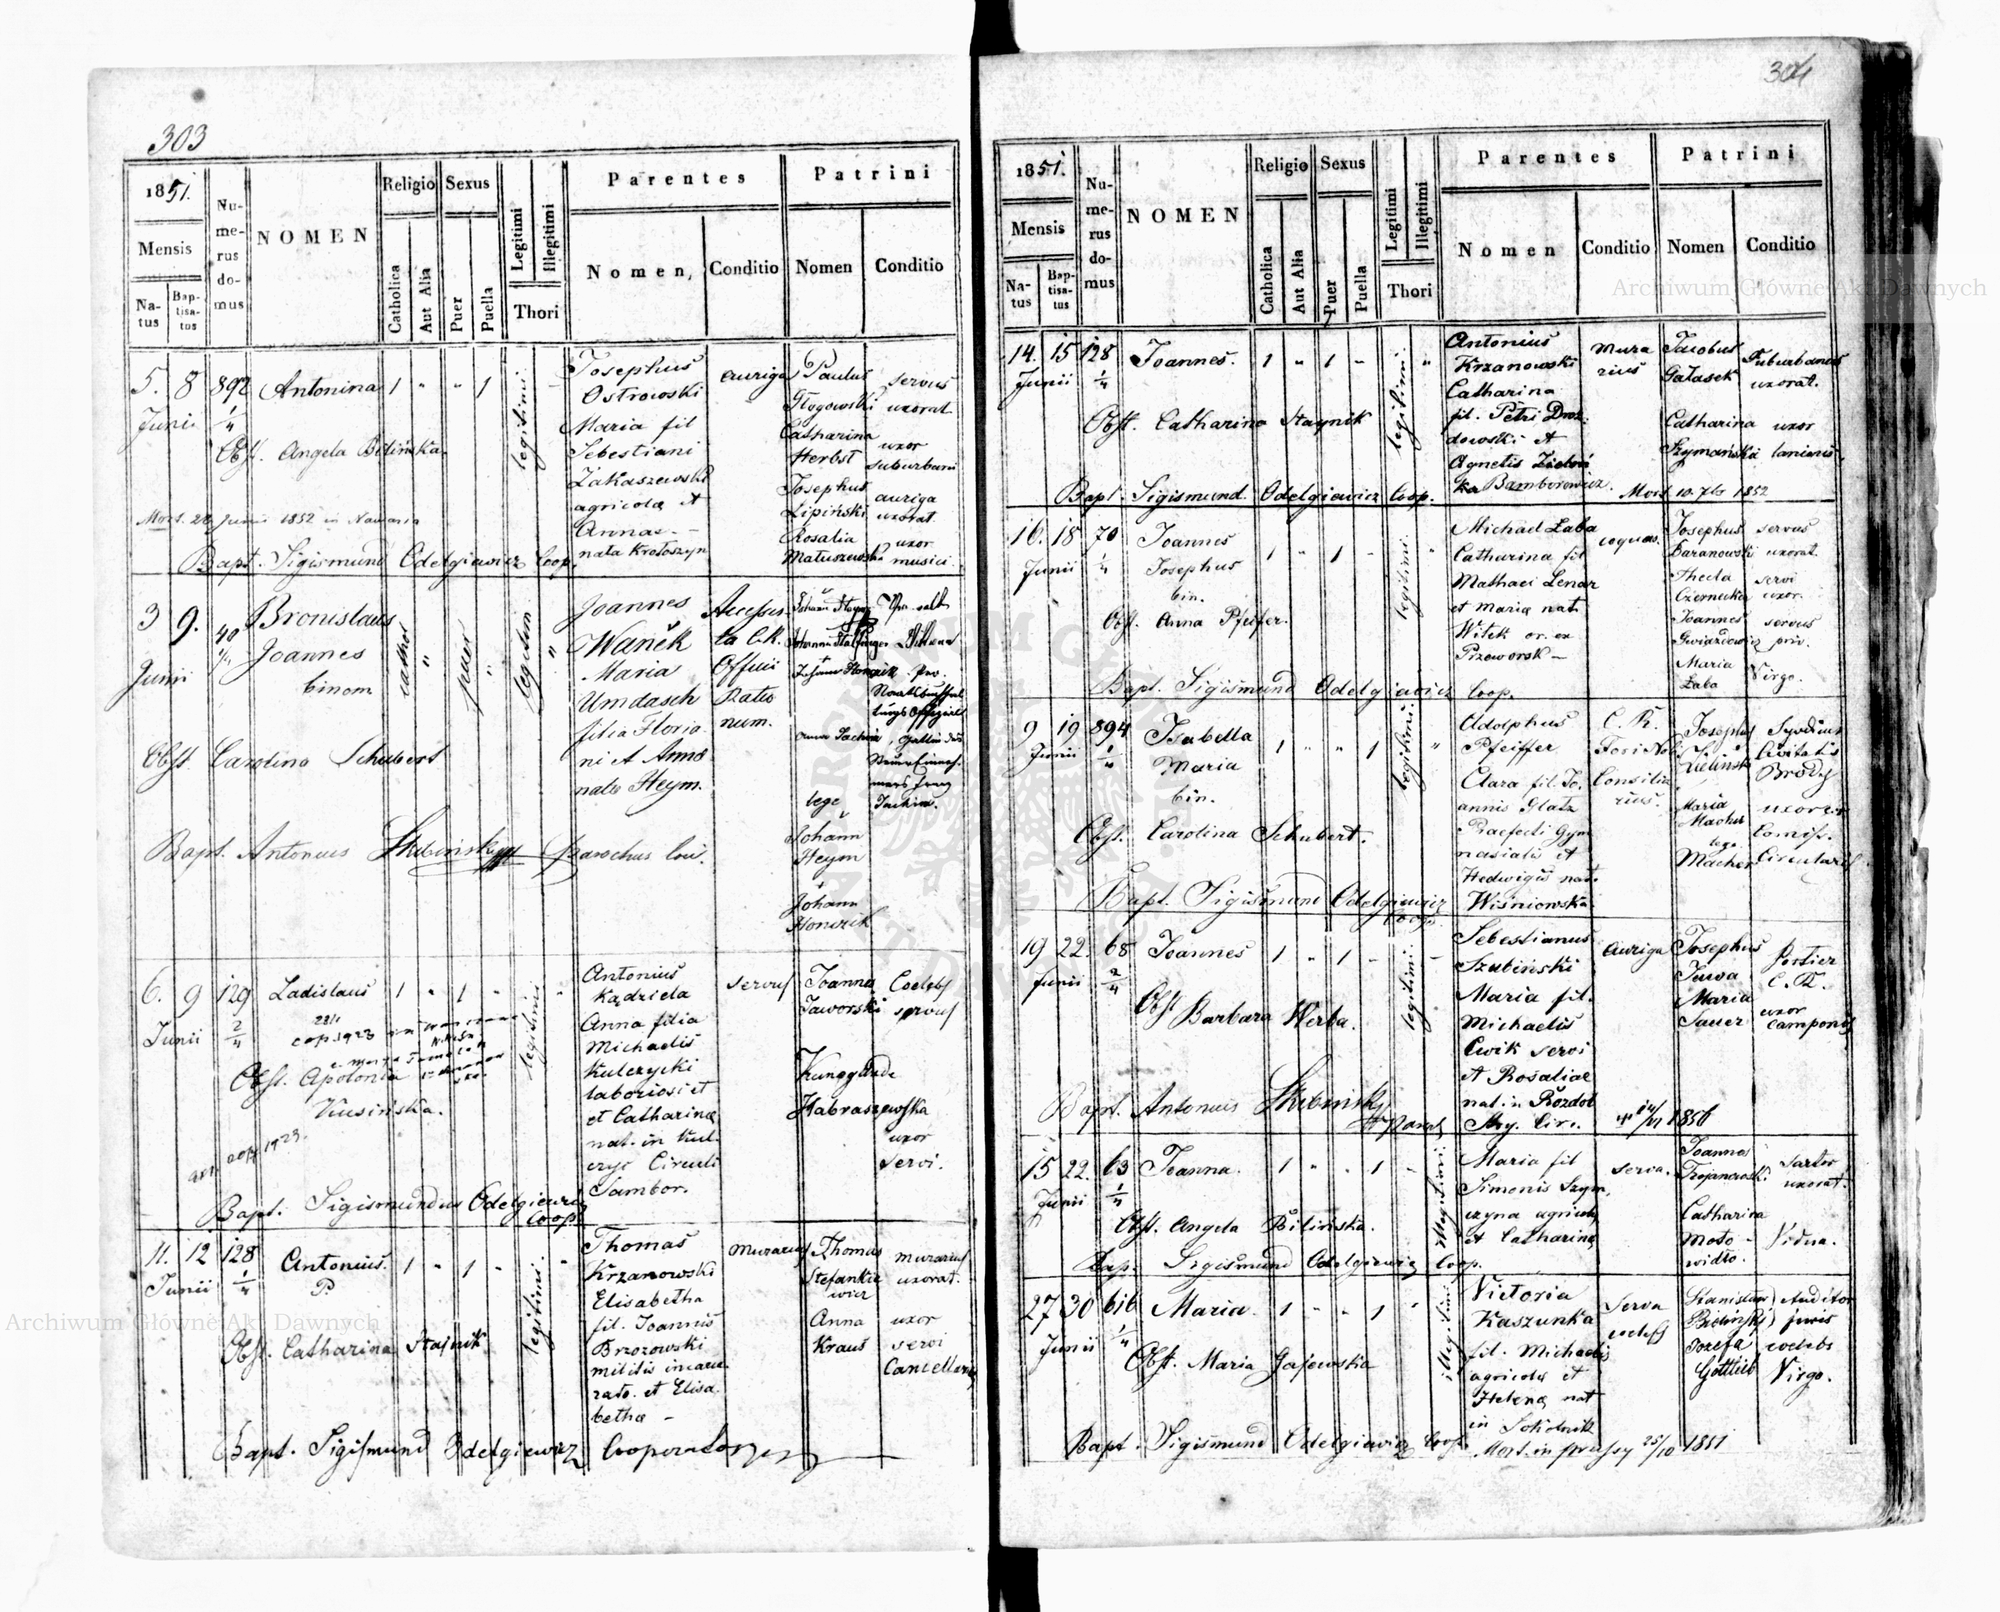 303
1851.
Mensis
Natus
Baptisatus
Numerus domus
NOMEN
Religio
Catholica
Aut Alia
Sexus
Puer
Puella
Legitimi
Illegitimi
Thori
Parentes
Nomen,
Conditio
Patrini
Nomen
Conditio
5. 8 892 Antonina 1 " " 1 legitimi
Junii 1/4
Obst. Angela Bilińska
Josephus
Ostrowski
Maria fil
Sebestiani
Zakaszewski
agricola et
Annae
nata Krotoszyn
auriga
Paulus servus
Głogowski uxorat.
Catharina uxor
Herbst suburbani
Josephus auriga
Lipiński uxorat.
Rosalia uxor
Matuszewski musici.
Mort. 22 Junii 1852 in Navaria
Bapt. Sigismund Odelgiewicz Coop.
3 9. 40 Bronislaus
Junii Joannes
binom
cathol " puer " legitim "
Obst Carolina Schubert
Joannes
Waněk
Maria
Umdasch
filia Floria
ni et Anna
nata Heym.
Accessis
ta C.K.
Officii
Ratio
num.
Anna Jachim
lege Jachim.
Johann
Heym
Johann
Honzik
Bapt. Antonius Skibinsky Parochus loci.
6. 9 129 Ladislaus 1 " 1 " legitimi "
Junii 2/4
cop. 1923
Obst. Apolonia
Kusińska.
Antonius
Kądziela
Anna filia
Michaelis
Kulczycki
laboriosi et
et Catharina
nat. in Kul
czyc Circuli
Sambor.
servus
Joanna Coelebs
Jaworski servus
Kunegunda
Habraszewska
uxor
servi.
Bapt. Sigismundus Odelgiewicz
Coop.
11. 12 128 Antonius 1 " 1 " legitimi "
Junii 1/4 P.
Obst. Catharina Stajnik
Thomas
Krzanowski
Elisabetha
fil. Joannis
Brzozowski
militis
et Elisa
betha
Murarius
Thomas murarius
Stefankie uxorat.
wicz
Anna uxor
Kraus servi
Cancellariae
Bapt. Sigismund Odelgiewicz Cooperator
304
1851.
Mensis
Natus
Baptisatus
Numerus domus
NOMEN
Religio
Catholica
Aut Alia
Sexus
Puer
Puella
Legitimi
Illegitimi
Thori
Parentes
Nomen
Conditio
Patrini
Nomen
Conditio
14. 15 128 Joannes. 1 " 1 " legitimi. "
Junii 1/4
Obst. Catharina Staynik
Antonius
Krzanowski
Catharina
fil. Petri Droz
dowski et
Agnetis
Bamborowicz.
Mura
rius
Jacobus Suburbanus
Gałasek uxorat.
Catharina uxor
Szymańska lanionis
Mort. 10. 7br 1852
Bapt. Sigismund. Odelgiewicz Coop.
16. 18 70 Joannes 1 " 1 " legitimi. "
Junii 1/4 Josephus
bin.
Obst. Anna Pfeifer.
Michael Laba
Catharina fil
Mathaei Lenar
et Maria nat.
Witek or. ex
Przeworsk
coquus.
Josephus servus
Baranowski uxorat.
Thecla servi
Czernecka uxor.
Joannes servus
Gwiazdowicz priv.
Maria Virgo.
Laba
Bapt. Sigismund Odelgiewicz Coop.
9 19 894 Isabella 1 " " 1 legitimi. "
Junii 1/4 Maria
bin.
Obst. Carolina Schubert.
Adolphus
Pfeiffer
Clara fil. Jo
annis Glatz
Praefecti Gym
nasialis et
Hedwigis nat.
Wiśniowska
C. R.
Fori Nob
Consilia
rius.
Joseph Syndicus
Zieliński Civitatis
Brody
Maria uxor
Macher Comiss.
lege
Macher Circularis
Bapt. Sigismund Odelgiewicz
Coop.
19 22. 68 Joannes 1 " 1 " legitimi.
Junii 2/4
Obst Barbara Herba.
Sebestianus
Szubiński
Maria fil.
Michaelis
Cwik servi
et Rosaliae
nat. in Rozdoł
Stry. Circ.
auriga
Josephus Portier
Juwa C. R.
Maria uxor
Sauer camponis
1856
Bapt. Antonius Skibinsky
15 22. 63 Joanna. 1 " " 1 " illegitimi.
Junii 1/4
Obst. Angela Bilińska.
Maria fil
Simonis Szym
czyna agricola
et Catharina
serva.
Joannes Sartor
Trojanowski uxorat.
Catharina
Moto Vidua.
widło.
Bap. Sigismund Odelgiewicz Coop.
27 30 616 Maria. 1 " " 1 " illegitimi.
Junii 1/4
Obst. Maria Gajewska
Victoria
Kaszunka
fil. Michaelis
agricola et
Helena nat
in Sokolnik
Serva
coelebs
Stanislaus Auditor
Bieliński juris
Josefa coelebs
Gottlieb Virgo.
Bapt. Sigismund Odelgiewicz Coop. Mort. in 25/10 1851
Archiwum Główne Akt Dawnych
Archiwum Główne Akt Dawnych